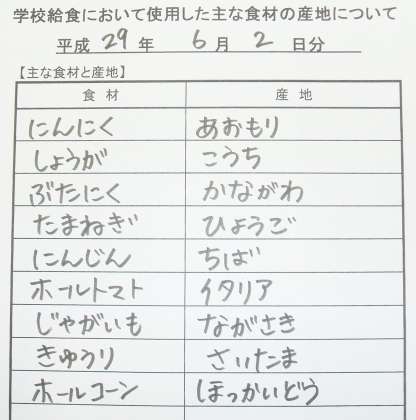 学校給食において使用した主な食材の産地について
平成 29 年 6 月 2 日分
【主な食材と産地】
食 材 産 地
にんにく あおもり
しょうが こうち
ぶたにく かながわ
たまねぎ ひょうご
にんじん ちば
ホールトマト イタリア
じゃがいも ながさき
きゅうり さいたま
ホールコーン ほっかいどう